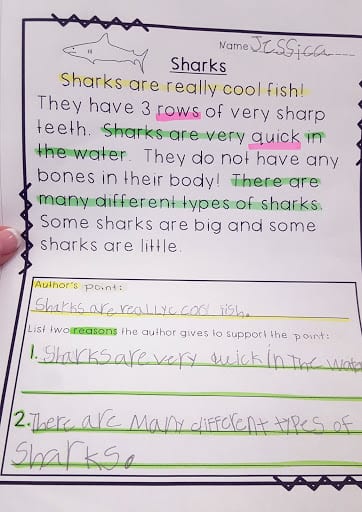 Name Jessica
Sharks
Sharks are really cool fish!
They have 3 rows of very sharp
teeth. Sharks are very quick in
the water. They do not have any
bones in their body! There are
many different types of sharks.
Some sharks are big and some
sharks are little.
Author's point:
Sharks are reallye cool fish.
List two reasons the author gives to support the point:
1. Sharks are very quick in The Water
2. There are Many different types of
Sharks.